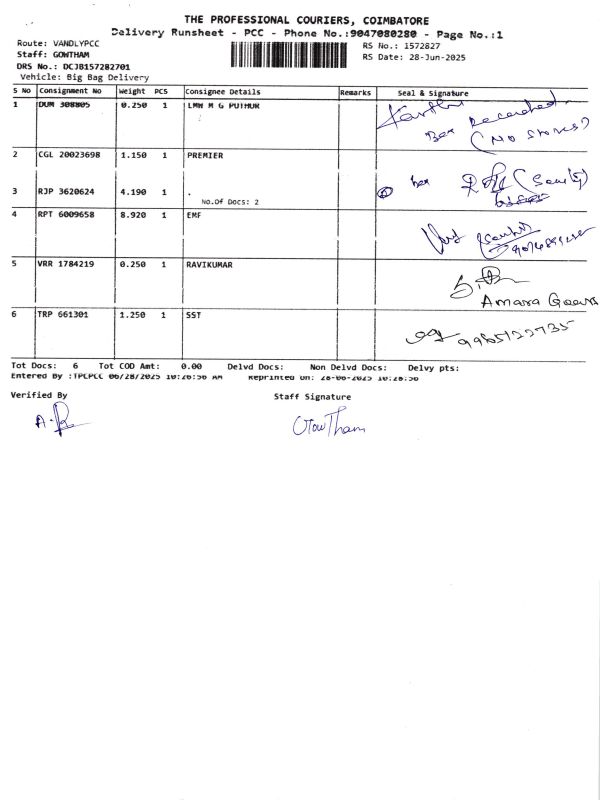 THE PROFESSIONAL COURIERS, COIMBATORE
Delivery Runsheet - PCC - Phone No.:9047080280 - Page No.:1
Route: VANDLYPCC
RS No.: 1572827
Staff: GOWTHAM
RS Date: 28-Jun-2025
DRS No.: DCJB157282701
Vehicle: Big Bag Delivery
S No Consignment No Weight PCS Consignee Details Remarks Seal & Signature
1 DUM 308805 0.250 1 LMW M G PUTHUR
Box Received.
(No Stores)
2 CGL 20023698 1.150 1 PREMIER
3 RJP 3620624 4.190 1 .
No.Of Docs: 2
4 RPT 6009658 8.920 1 EMF
5 VRR 1784219 0.250 1 RAVIKUMAR
Amara Gears
6 TRP 661301 1.250 1 SST
Tot Docs: 6 Tot COD Amt: 0.00 Delvd Docs: Non Delvd Docs: Delvy pts:
Entered By :TPCPCC 06/28/2025 10:26:56 AM Reprinted On: 28-06-2025 10:28:56
Verified By
Staff Signature
Gowtham